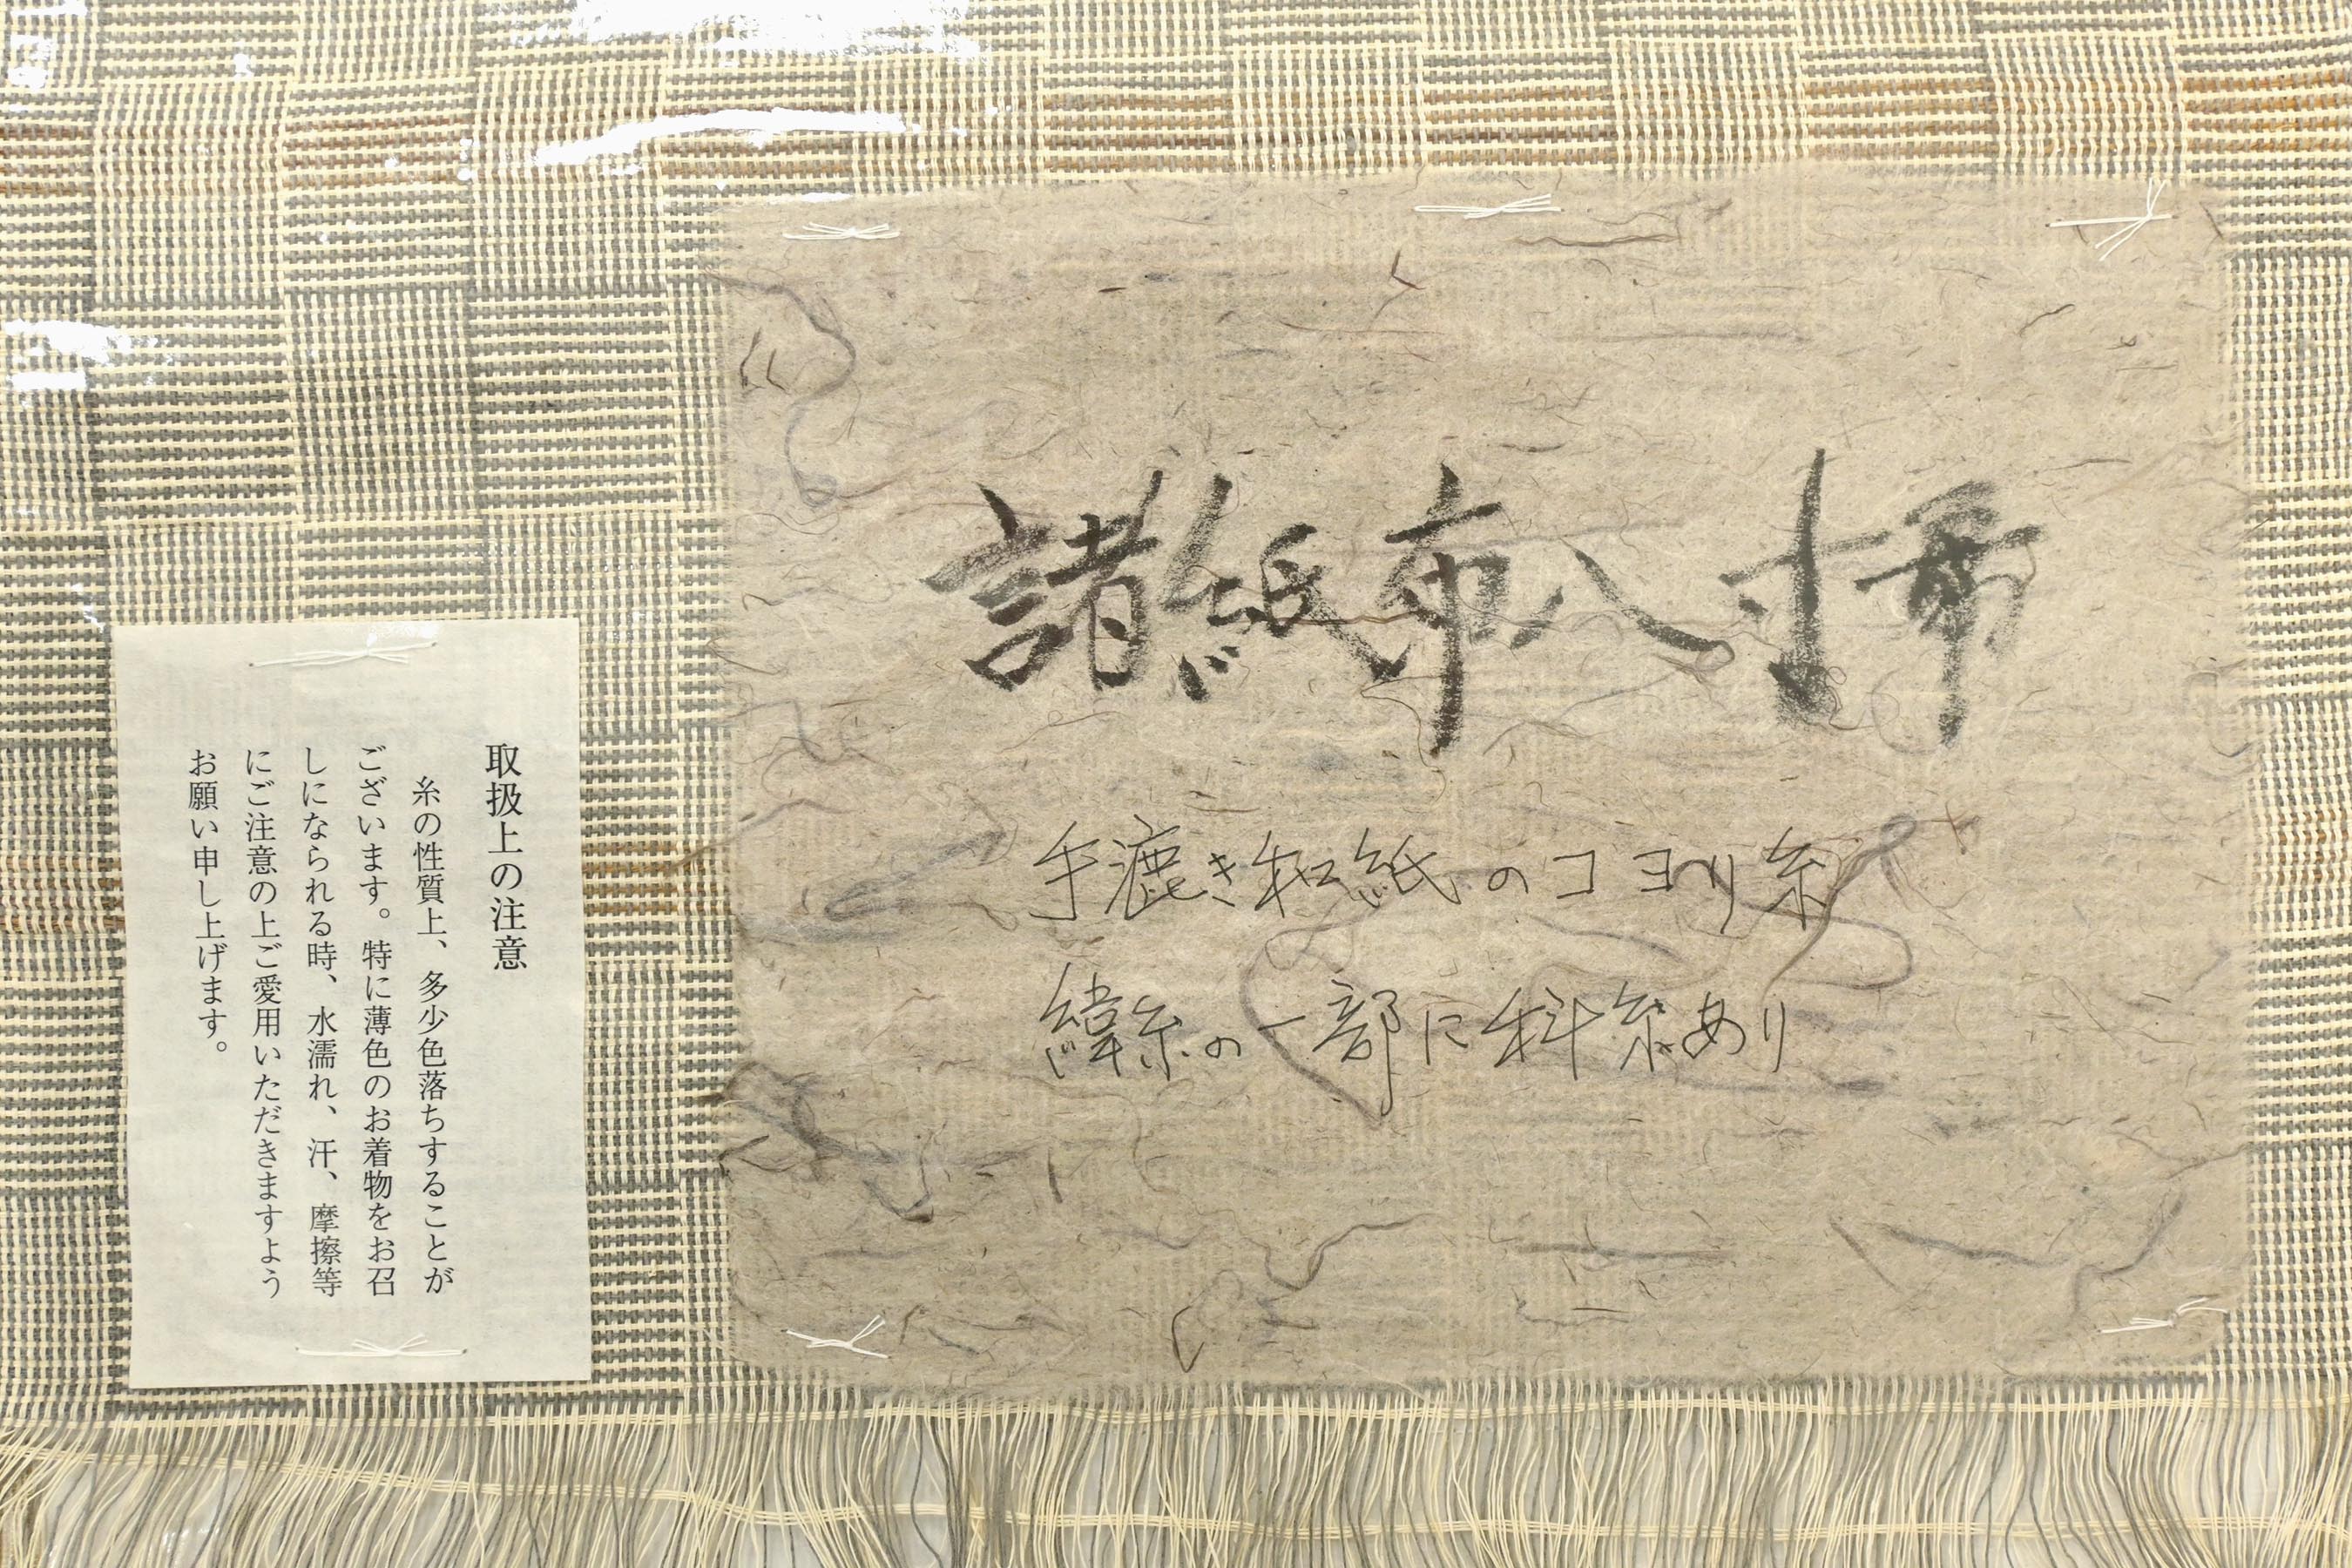 諸紙布八寸帯
手漉き和紙のコヨリ糸
緯糸の一部に科糸あり
取扱上の注意
糸の性質上、多少色落ちすることが
ございます。特に薄色のお着物をお召
しになられる時、水濡れ、汗、摩擦等
にご注意の上ご愛用いただきますよう
お願い申し上げます。